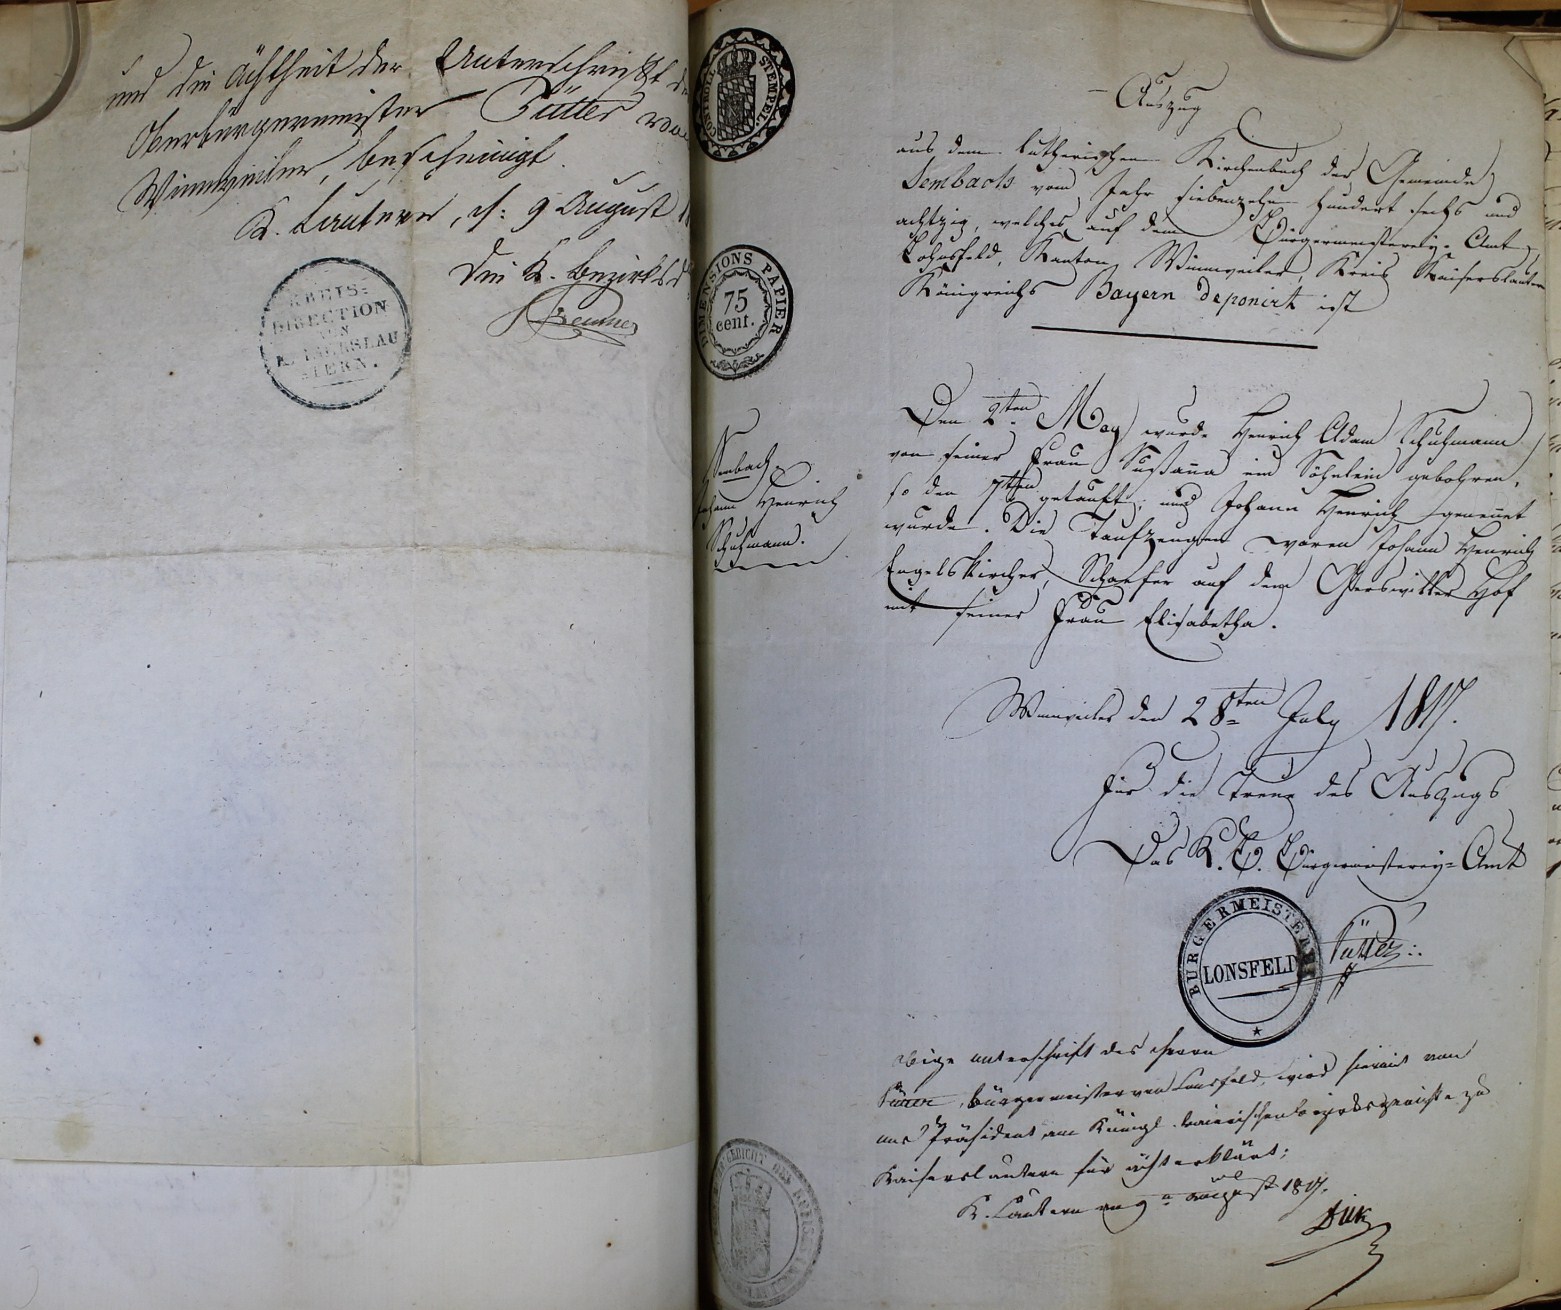 und die Ächtheit der Unterschrift
Oberbürgermeister Pütter von
Winnweiler, bescheinigt.
K. Lautern, d: 9 August
Die K. Bezirksd
KREIS=
DIRECTION
IN
KAISERSLAU
TERN.
CONTROLL STEMPEL.
DIMENSIONS PAPIER
75
cent.
Auszug
aus dem lutherischen Kirchenbuch der Gemeinde
Sembach vom Jahr siebenzehn hundert sechs und
achtzig, welches auf dem Bürgermeisterey-Amt
Lohnsfeld, Kanton Winnweiler, Kreis Kaiserslautern
Königreichs Bayern deponirt ist
Sembach
Johann Henrich
Schuhmann.
Den 2ten May wurde Henrich Adam Schuhmann
von seiner Frau Susanna ein Söhnlein gebohren,
so den 7ten getauft, und Johann Henrich genennet
wurde. Die Taufzeugen waren Johann Henrich
Engelskircher, Schaefer auf dem Hof
mit seiner Frau Elisabetha.
Winnweiler den 28ten July 1817.
Für die Treue des Auszugs
Das K. B. Bürgermeisterey-Amt
BÜRGERMEISTEREI
LONSFELD
Pütter
Obige unterschrift des Herrn
Pütter, bürgermeister von Lonsfeld, wird hiermit von
uns Präsident am Königl. baierischen bezirksgerichte zu
Kaiserslautern für ächt erklärt;
K. Lautern am 9n august 1817.